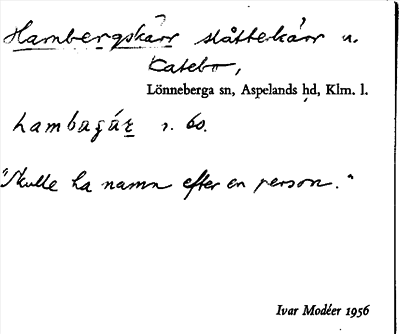 Hambergskärr slåtterkärr u.
Katebo,
Lönneberga sn, Aspelands hd, Klm. l.
hambaṣár r. 60.
"Skulle ha namn efter en person."
Ivar Modéer 1956